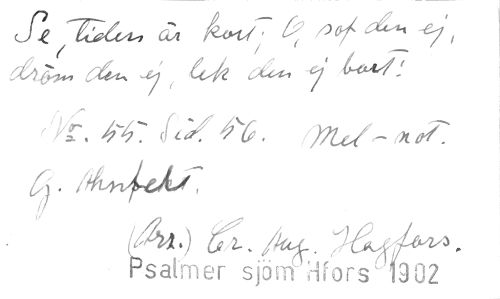 Se, tiden är kort; O, sof den ej,
dröm den ej, lek den ej bort!
No. 55. Sid. 56. Mel-not.
G.
(Arr.) Cr. Aug. Hagfors.
Psalmer sjöm Hfors 1902